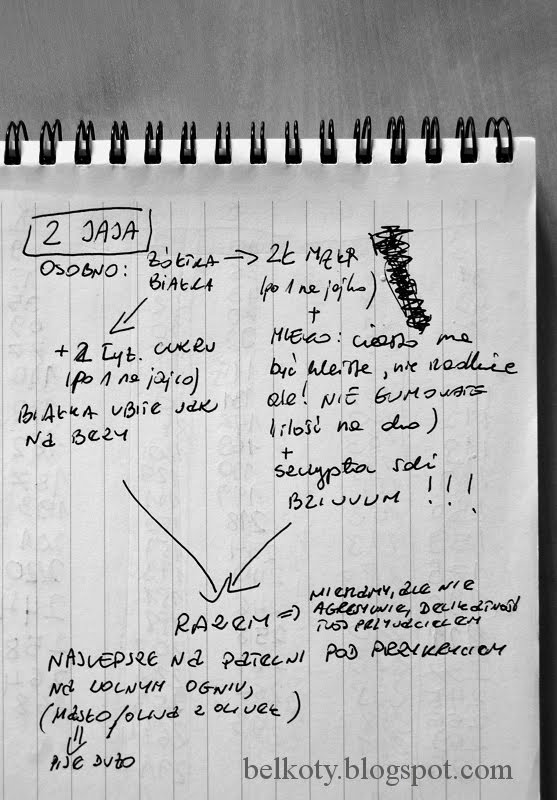 2 JAJA
OSOBNO: ŻÓŁTKA → 2Ł MĄKI
BIAŁKA
(po 1 na jajko)
+
+ 2 ŁYŻ. CUKRU
(po 1 na jajco)
BIAŁKA UBITE JAK
NA BEZY
MLEKO: ciasto ma
być kleiste, nie rzadkie
ale! NIE GUMOWATE
(ilość na oko)
+
szczypta soli
BZIUUUM !!!
RAZEM ⇒ MIESZAMY, ALE NIE
AGRESYWNIE, DELIKATNOŚĆ
PRZYJACIELEM
NAJLEPSZE NA PATELNI POD PRZYKRYCIEM
NA WOLNYM OGNIU,
(MASŁO/OLIWA Z OLIWEK)
PIJE DUŻO
belkoty.blogspot.com